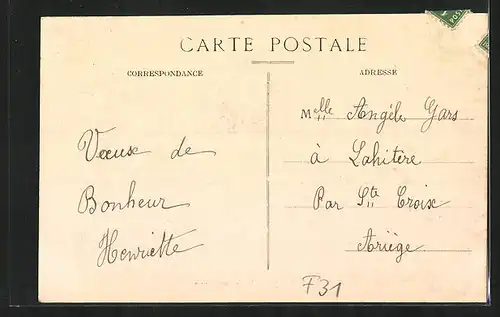 CARTE POSTALE
CORRESPONDANCE
ADRESSE
Vœux de
Bonheur
Henriette
Melle Angèle Gars
à Lahitère
Par Ste Croix
Ariège
F31